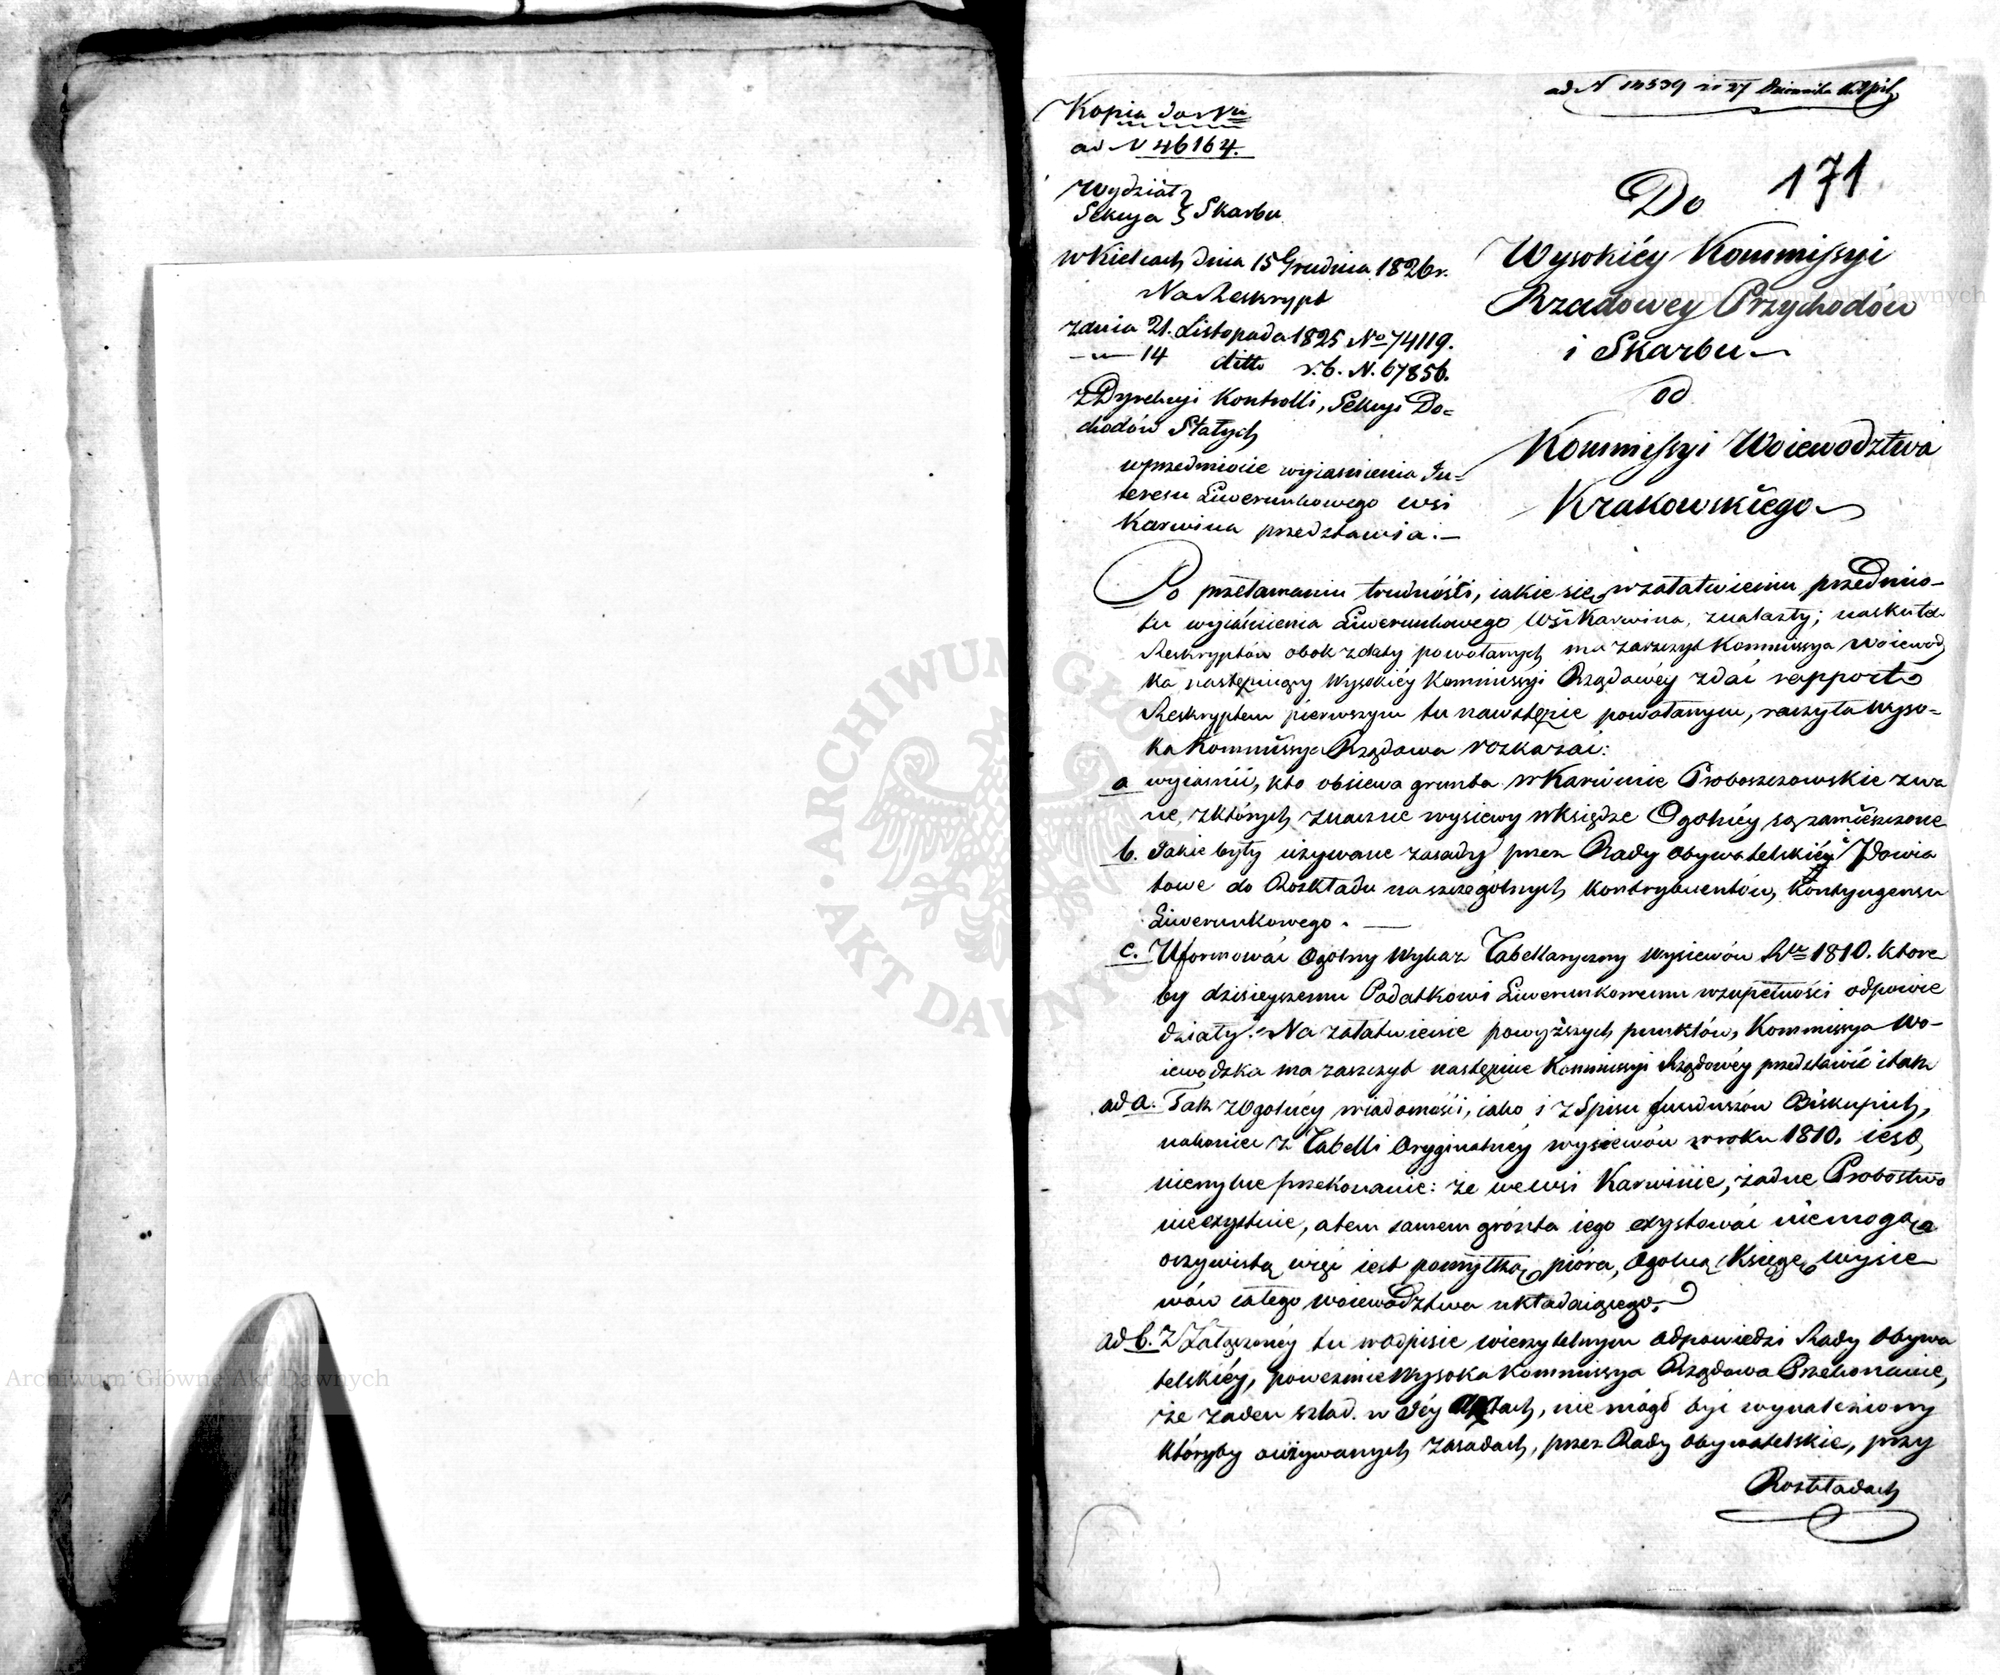 ad N 14539
171
Kopia
ad N 46164.
Wydział
Sekcya } Skarbu
w Kielcach dnia 15 Grudnia 1826 r.
Na Reskrypt
z dnia 21. Listopada 1825 No 74119.
— „ — 14 ditto r. b. N. 67856.
z Dyrekcyi Kontrolli, Sekcyi Do=
chodów Stałych
w przedmiocie wyiaśnienia In=
teresu Liwerunkowego wsi
Karwina przedstawia. —
Do
Wysokiéy Kommissyi
Rządowey Przychodów
i Skarbu
od
Kommissyi Województwa
Krakowskiego
Po przełamaniu trudności, iakie się w załatwieniu przedmio=
tu wyiaśnienia Liwerunkowego wsi Karwina, znalazły; na skutek
Reskryptów obok z daty powołanych ma zaszczyt Kommissya Woiewodz
ka następuiący Wysokiéy Kommissyi Rządowéy zdać rapport
Reskryptem pierwszym tu na wstępie powołanym, raczyła Wyso=
ka Kommissya Rządowa rozkazać:
a wyiaśnić, kto obsiewa grunta w Karwinie Proboszczowskie zwa
ne, z których znaczne wysiewy w księdze Ogolnéy są zamieszczone
b. Jakie były używane zasady przez Rady Obywatelskie Powia
towe do Rozkładu na szczegolnych kontrybuentów, Kontyngensu
Liwerunkowego. —
c. Uformować Ogólny Wykaz Tabellaryczny Wysiewów Rku 1810. które
by dzisieyszemu Podatkowi Liwerunkowemu w zupełności odpowie
działy. Na załatwienie powyższych punktów, Kommissya Wo=
iewodzka ma zaszczyt następnie Kommissyi Rządowéy przedstawić i tak
ad a. Tak z Ogolnéy wiadomości, iako i z Spisu funduszów Biskupich,
nakoniec z Tabelli Oryginalnéy wysiewów z roku 1810. iest
niemylne przekonanie: że we wsi Karwinie, żadne Probostwo
nieexystuie, a tem samem grónta iego exystować niemogą, a
oczywistą więc iest pomyłką pióra, Ogolną Księgę wysie
wów całego Województwa układaiącego.
ad b. Z Załączonéy tu w odpisie wierzytelnym odpowiedzi Rady Obywa
telskiéy, poweźmie Wysoka Kommissya Rządowa Przekonanie,
że żaden ślad w Jéy Aktach, nie mógł być wynaleziony
któryby o używanych zasadach, przez Rady Obywatelskie, przy
Rozkładach
ARCHIWUM GŁÓWNE AKT DAWNYCH
Archiwum Główne Akt Dawnych
Archiwum Główne Akt Dawnych